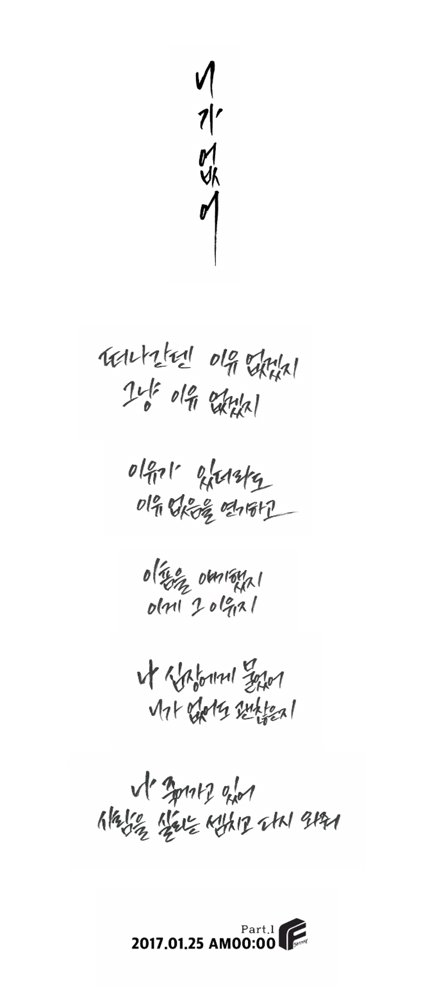 니가 없어
떠나간덴 이유 없겠지
그냥 이유 없겠지
이유가 있더라도
이유 없음을 연기하고
아픔을 얘기했지
이게 그 이유지
나 심장에게 물었어
니가 없어도 괜찮은지
나 죽어가고 있어
사람을 살리는 셈치고 다시 와줘
Part.1
2017.01.25 AM00:00